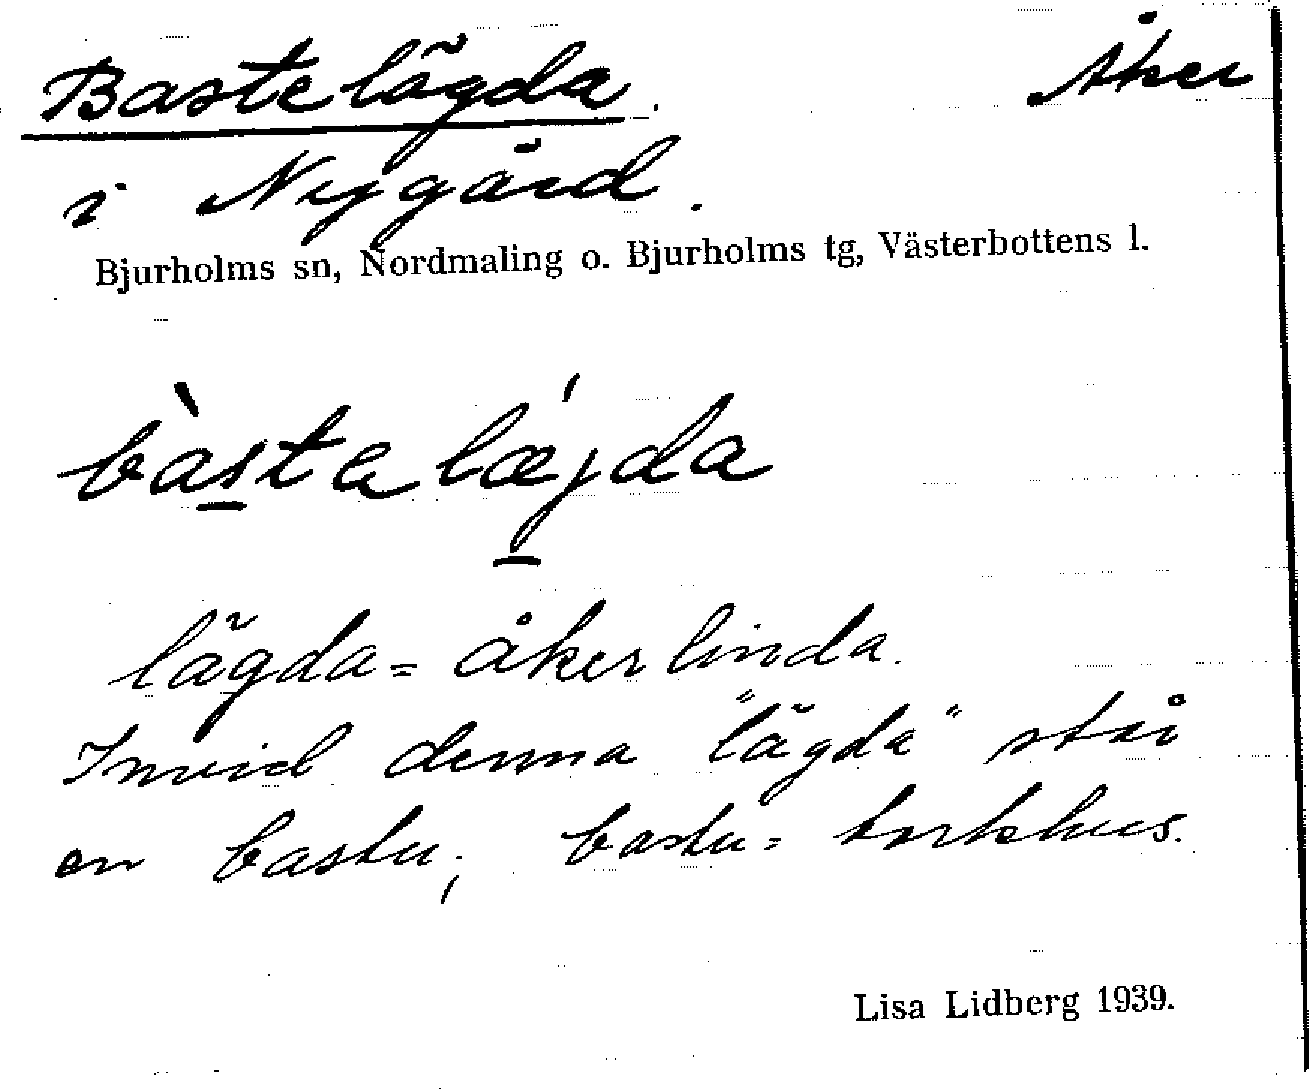 Bastelägda. Åker
i Nygård.
Bjurholms sn, Nordmaling o. Bjurholms tg, Västerbottens l.
bàstalǽjda
lägda = åkerlinda.
Invid denna "lägda" står
en bastu; bastu = torkhus.
Lisa Lidberg 1939.